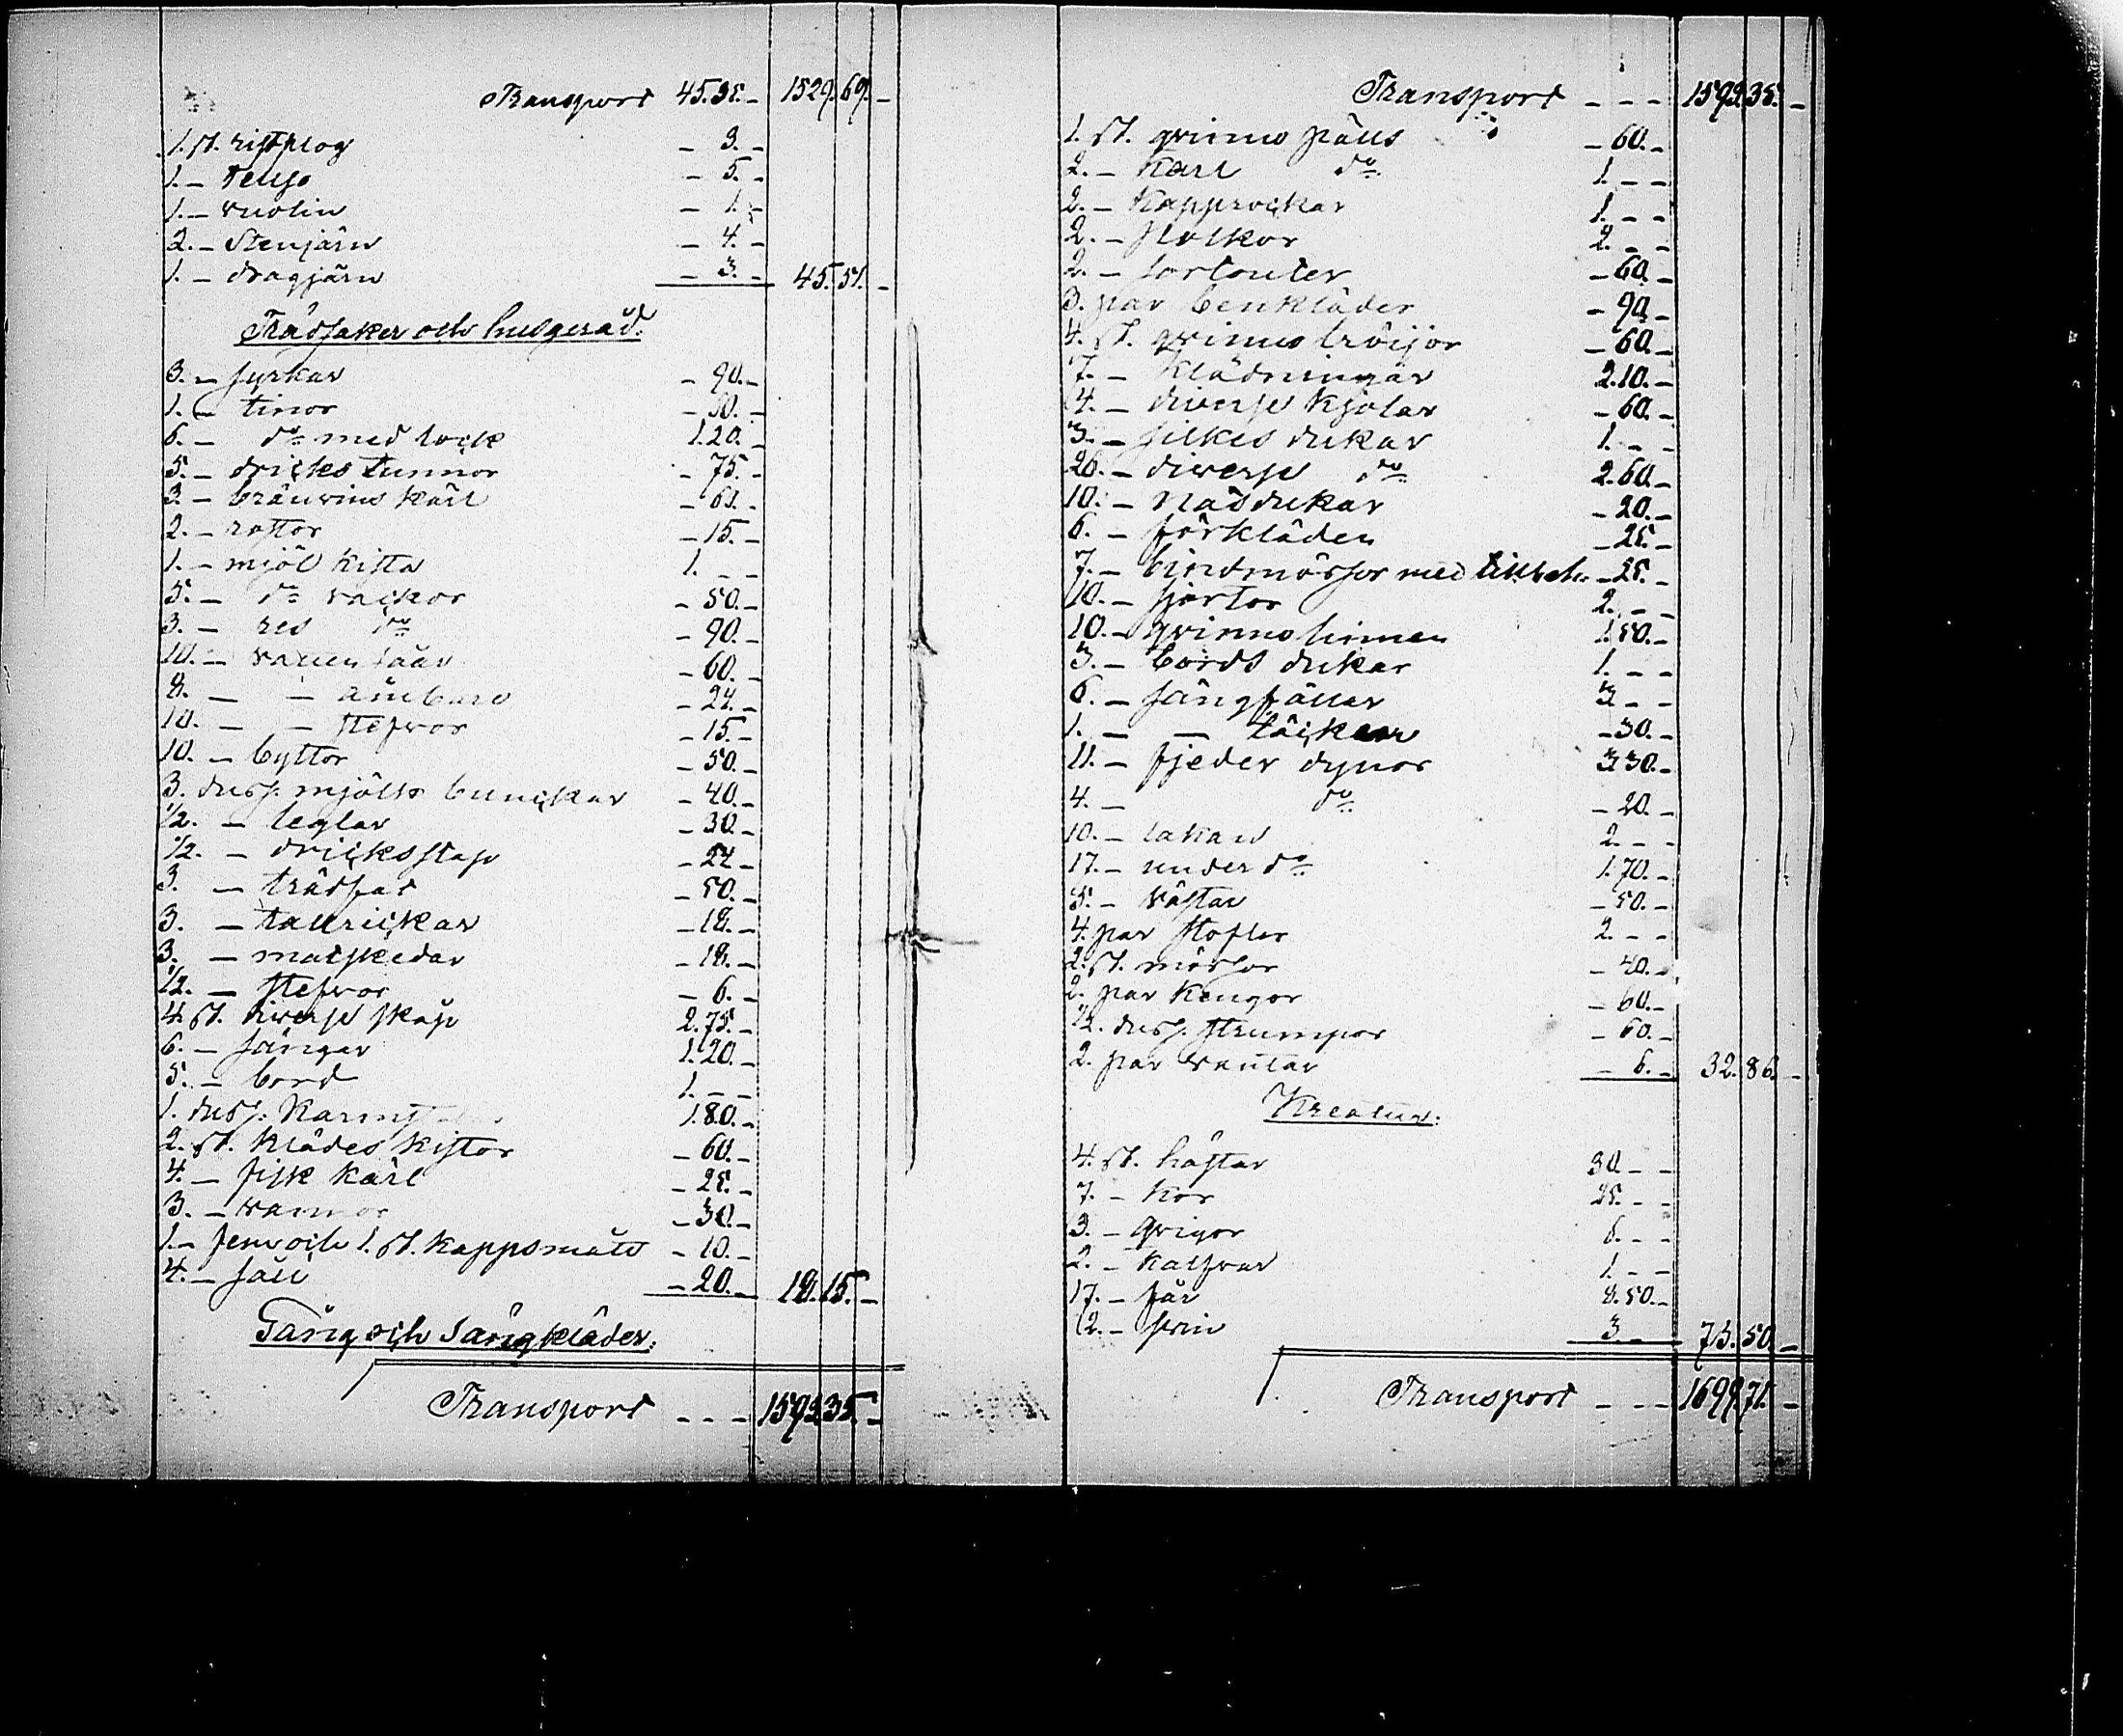 Transport 45.35.- 1529.69.-
1. st. ristplog - 3.-
1.- tenso - 5.-
1.- vuolin - 1.-
2.- Stenjärn - 4.-
1.- dragjärn - 3.- 45.51.-
Trädsaker och husgeråd:
3.- fyrkar - 90.-
1.- tinor - 30.-
6.- do med lock 1.20.-
5.- dricks tunnor - 75.-
3.- bränvins kärl - 61.-
2.- rottor - 15.-
1.- mjöl kista 1.--
5.- do vackor - 50.-
3.- res do - 90.-
10.- vatten såar - 60.-
8.- - ämbare - 24.-
10.- - stefvor - 15.-
10.- byttor - 50.-
3. duss. mjölks bunckar - 40.-
1/2.- leglar - 30.-
1/2.- dricksstop - 24.-
3.- trädfat - 50.-
3.- tallrickar - 18.-
3.- matskedar - 18.-
1/2.- stefvor - 6.-
4. st. diverse skåp 2.75.-
6.- sängar 1.20.-
5.- bord 1.--
1. duss. 1.80.-
2. st. klädes kistor - 60.-
4.- fisk kärl - 25.-
3.- vannor - 30.-
1.- och 1. st. kappsmått - 10.-
4.- såll - 20.- 18.15.-
Gång och Sängkläder:
Transport --- 1593.35.-
Transport --- 1593.35.-
1. st. qvinno päls - 60.-
2.- karl do 1.--
2.- kapprockar 1.--
2.- stolkor 2.--
2.- sortouter - 60.-
3. par benkläder - 90.-
4. st. qvinno tröijor - 60.-
7.- klädningar 2.10.-
4.- diverse kjolar - 60.-
3.- silkes dukar 1.--
26.- diverse do 2.60.-
10.- näsdukar - 20.-
6.- förkläden - 25.-
7.- bindmössor med - 25.-
10.- sjortor 2.--
10.- qvinno linnen 1.50.-
3.- bords dukar 1.--
6.- sängfällar 3.--
1.- - täcken - 30.-
11.- fjeder dynor 3.30.-
4.- do - 20.-
10.- lakan 2.--
17.- under do 1.70.-
5.- västar - 50.-
4. par stoflor 2.--
2. st. mössor - 40.-
2. par kengor - 60.-
1/2. duss. strumpor - 60.-
2. par vantar - 6.- 32.86.-
Kreatur:
4. st. hästar 30.--
7.- kor 25.--
3.- qvigor 6.--
2.- kalfvar 1.--
17.- får 8.50.-
12.- svin 3.- 73.50.-
Transport --- 1699.71.-